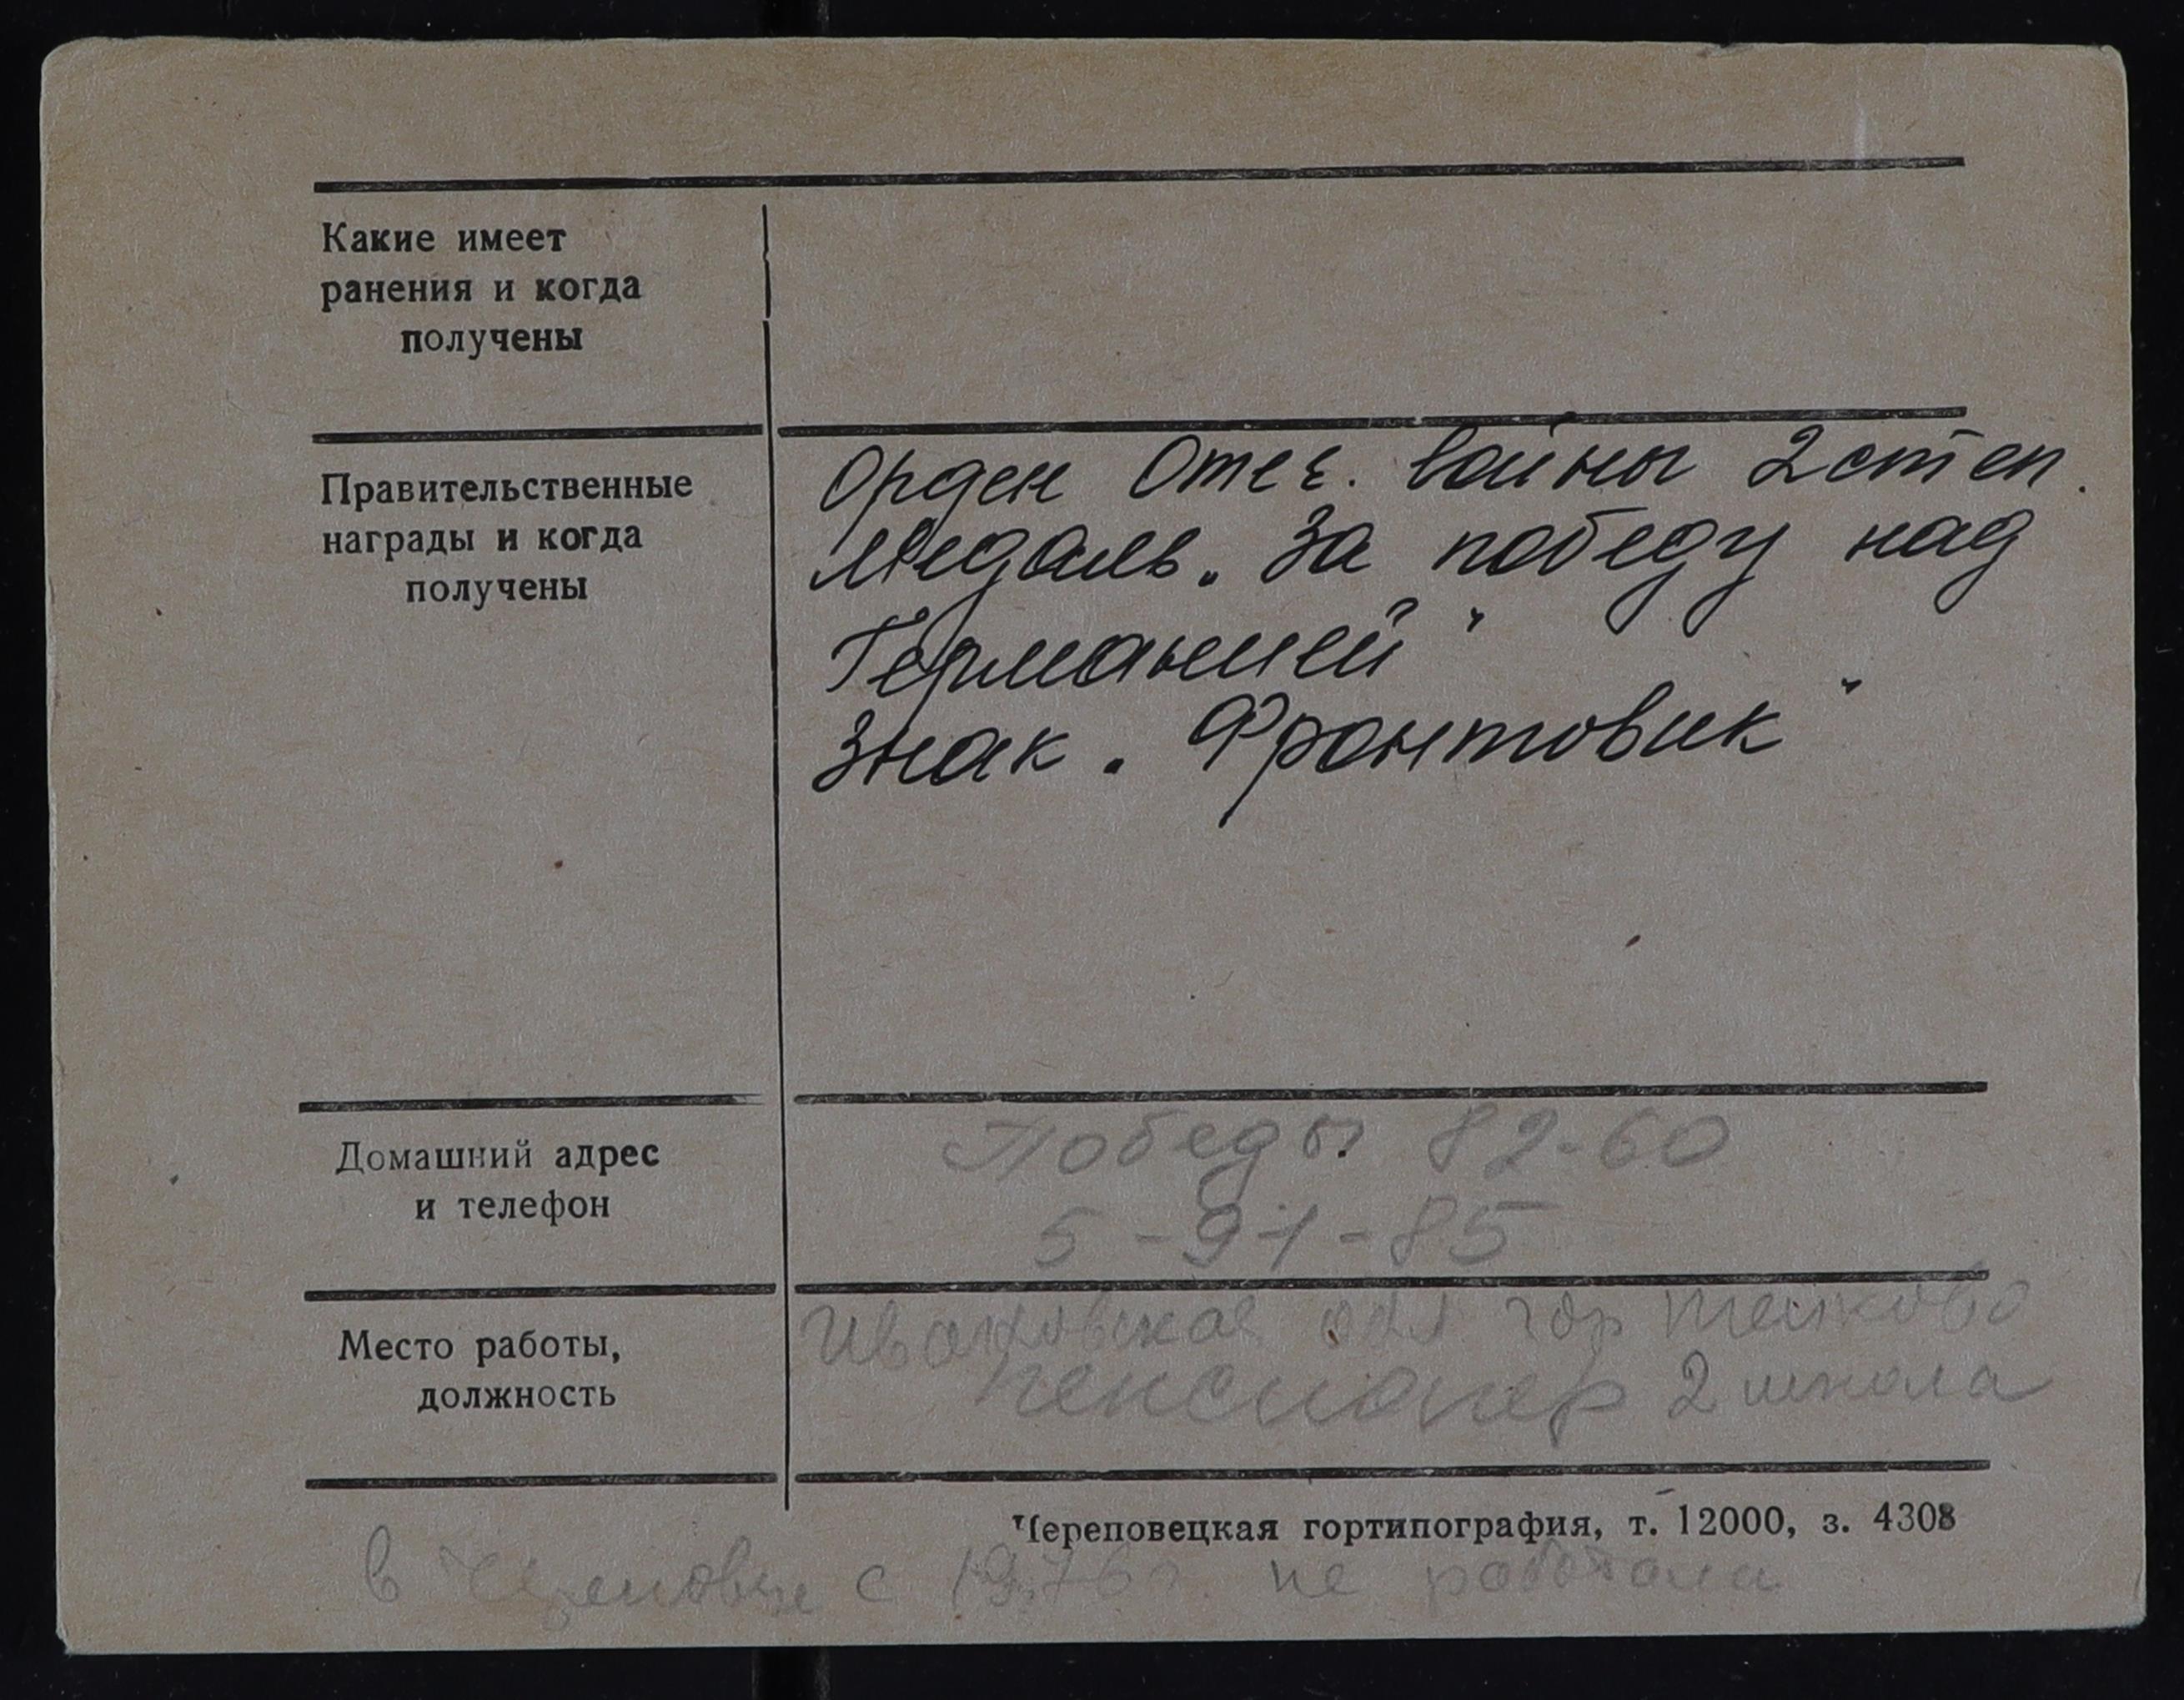 Какие имеет
ранения и когда
получены
Правительственные
награды и когда
получены
Орден Отеч. войны 2 степ.
Медаль „За победу над
Германией“
Знак „Фронтовик“
Домашний адрес
и телефон
Победы 82-60
5-91-85
Место работы,
должность
Ивановская обл гор Тейково
пенсионер 2 школа
Череповецкая гортипография, т. 12000, з. 4308
в Череповце с 1976 г. не работала